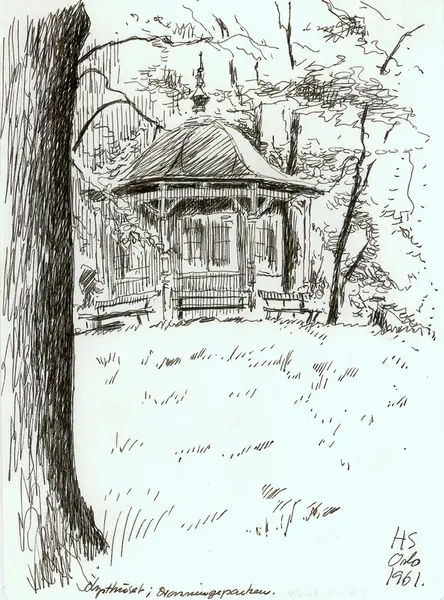 Lysthuset i Dronningeparken.
HS
Oslo
1961.